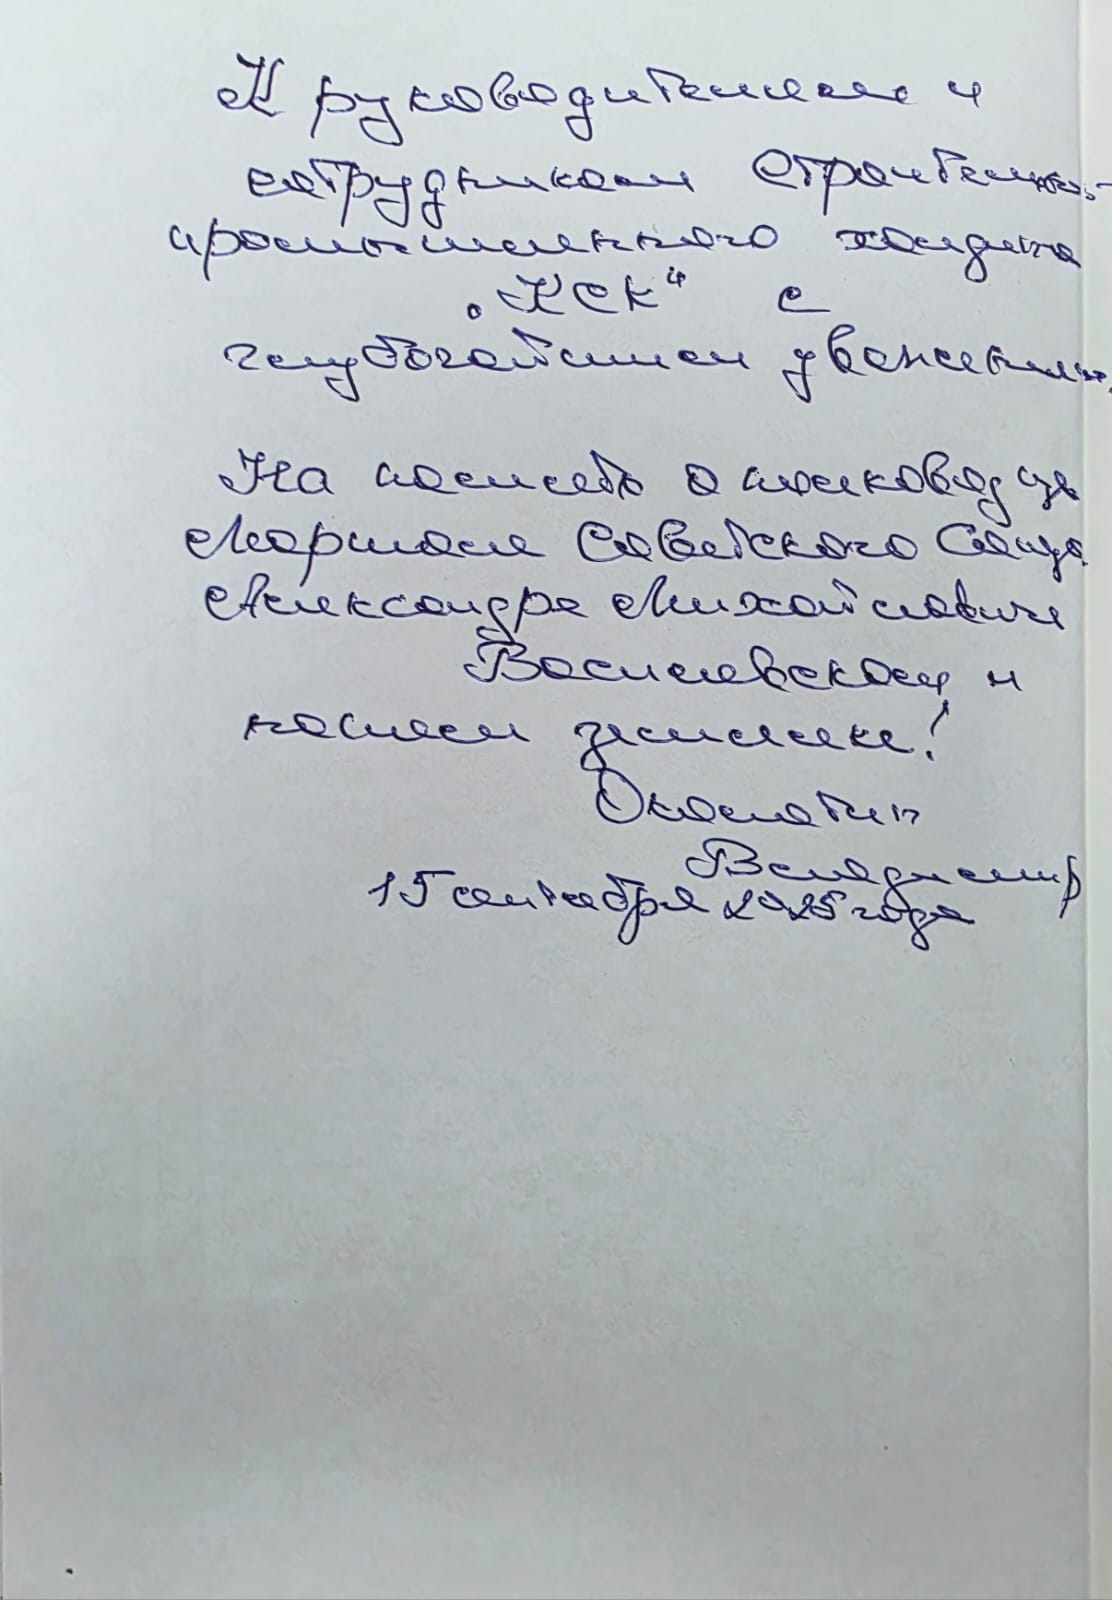 К руководителям и
сотрудникам Строительно-
промышленного холдинга
„КСК“ с
глубочайшим уважением.
На память о полководце
Маршале Советского Союза
Александре Михайловиче
Василевском и
нашем земляке!
Владимир
15 сентября 2025 года